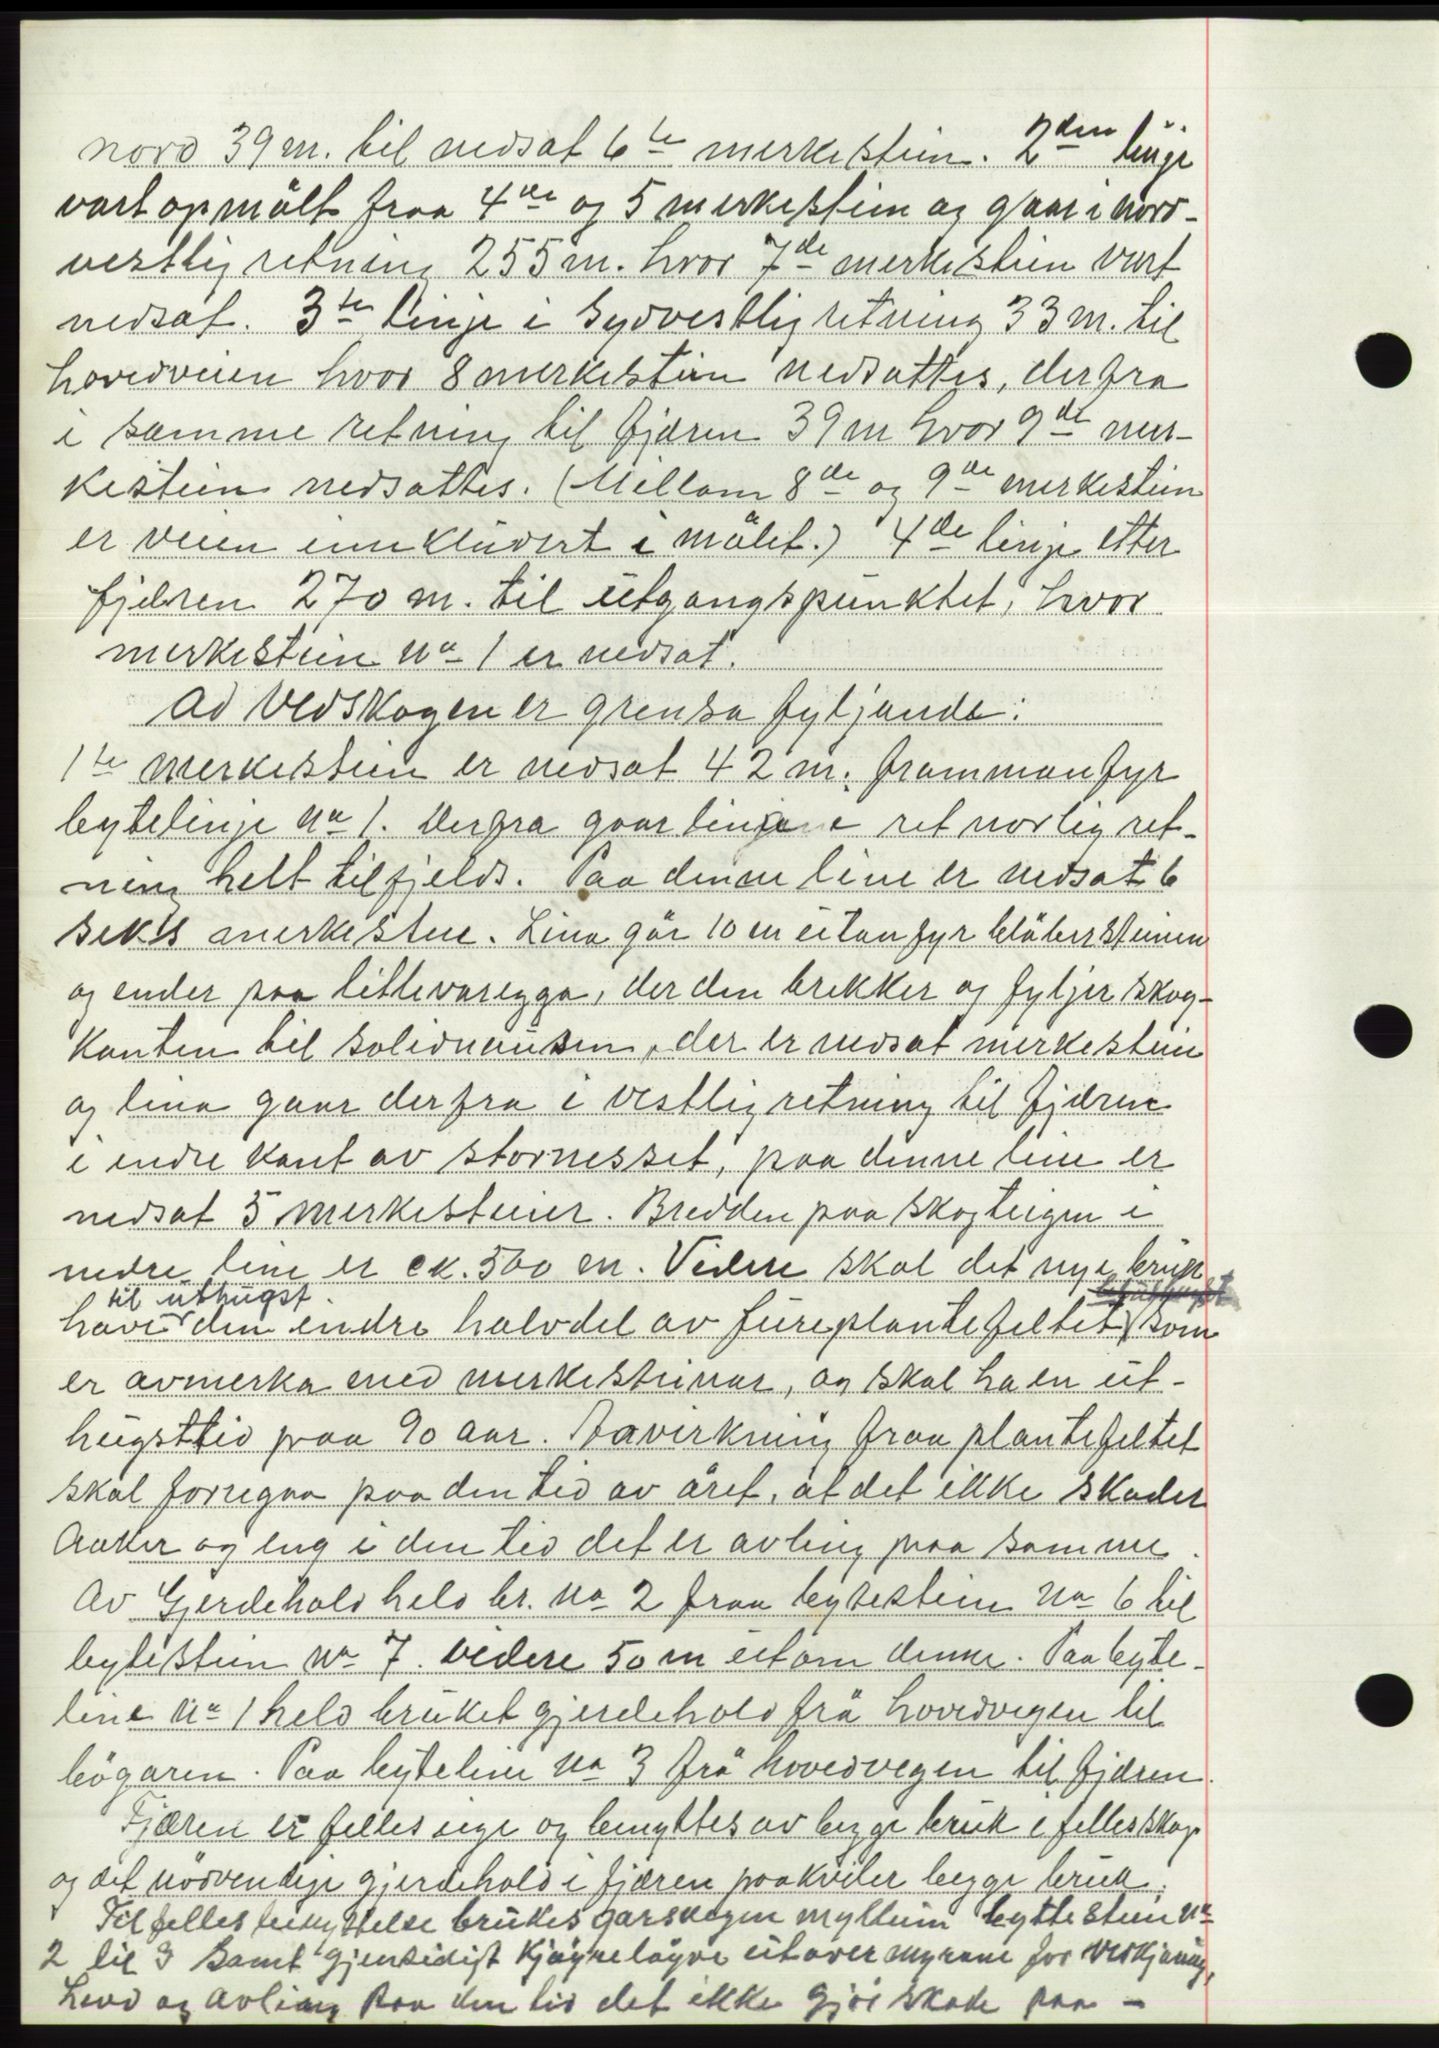 nord 39 m. til nedsat 6te merkestein. 2den linje
vart opmålt fraa 4de og 5 merkestein og gaar i nord-
vestlig retning 255 m. hvor 7de merkestein vart
nedsat. 3te linje i sydvestlig retning 33 m. til
hovedveien hvor 8 merkestein nedsattes, derfra
i samme retning til fjæren 39 m hvor 9de mer-
kestein nedsattes. (Mellom 8de og 9de merkestein
er veien innkludert i målet.) 4de linje etter
fjæren 270 m. til utgangspunktet, hvor
merkestein No 1 er nedsat.
Ad Vedskogen er grensa fyljande:
1te merkestein er nedsat 42 m. framman fyr
bytelinje No 1. Derfra gaar linjene ret norlig ret-
ning helt tilfjelds. Paa denne line er nedsat 6
seks merkestene. Lina går 10 m utanfyr blåbersteinen
og ender paa litlevaregga, der den brekker og fyljer skog-
kanten til solidnausen, der er nedsat merkestein
og lina gaar derfra i vestlig retning til fjæren
i endre kant av stornesset, paa denne line er
nedsat 5 merkesteiner. Bredden paa skogteigen i
nedre line er ck. 500 m. Videre skal det nye bruk
til uthugst
have den indre halvdel av fureplantefeltet som
er avmerka med merkesteinar, og skal ha en ut-
hugsttid paa 90 aar. Aavirkning fraa plantefeltet
skal forregaa paa den tid av året, at det ikke skader
Aaker og eng i den tid det er avling paa samme.
Av Gjerdehald held br. No 2 fraa bytestein No 6 til
bytestein No 7. videre 50 m utom denne. Paa byte-
line No 1 held bruket gjerdehold frå hovedvegen til
bøgaren. Paa byteline No 3 frå hovedvegen til fjæren.
Fjæren er felles eige og benyttes av begge bruk i fellesskap
og det nødvendige gjerdehold i fjæren paakviler begge bruk.
Til felles benyttelse brukes garsvegen myllum byttestein No
2 til 3 samt gjensidigt kjøyreløyve utover myrane for vedkjøring,
Lauv og avling paa den tid det ikke gjør skade paa -